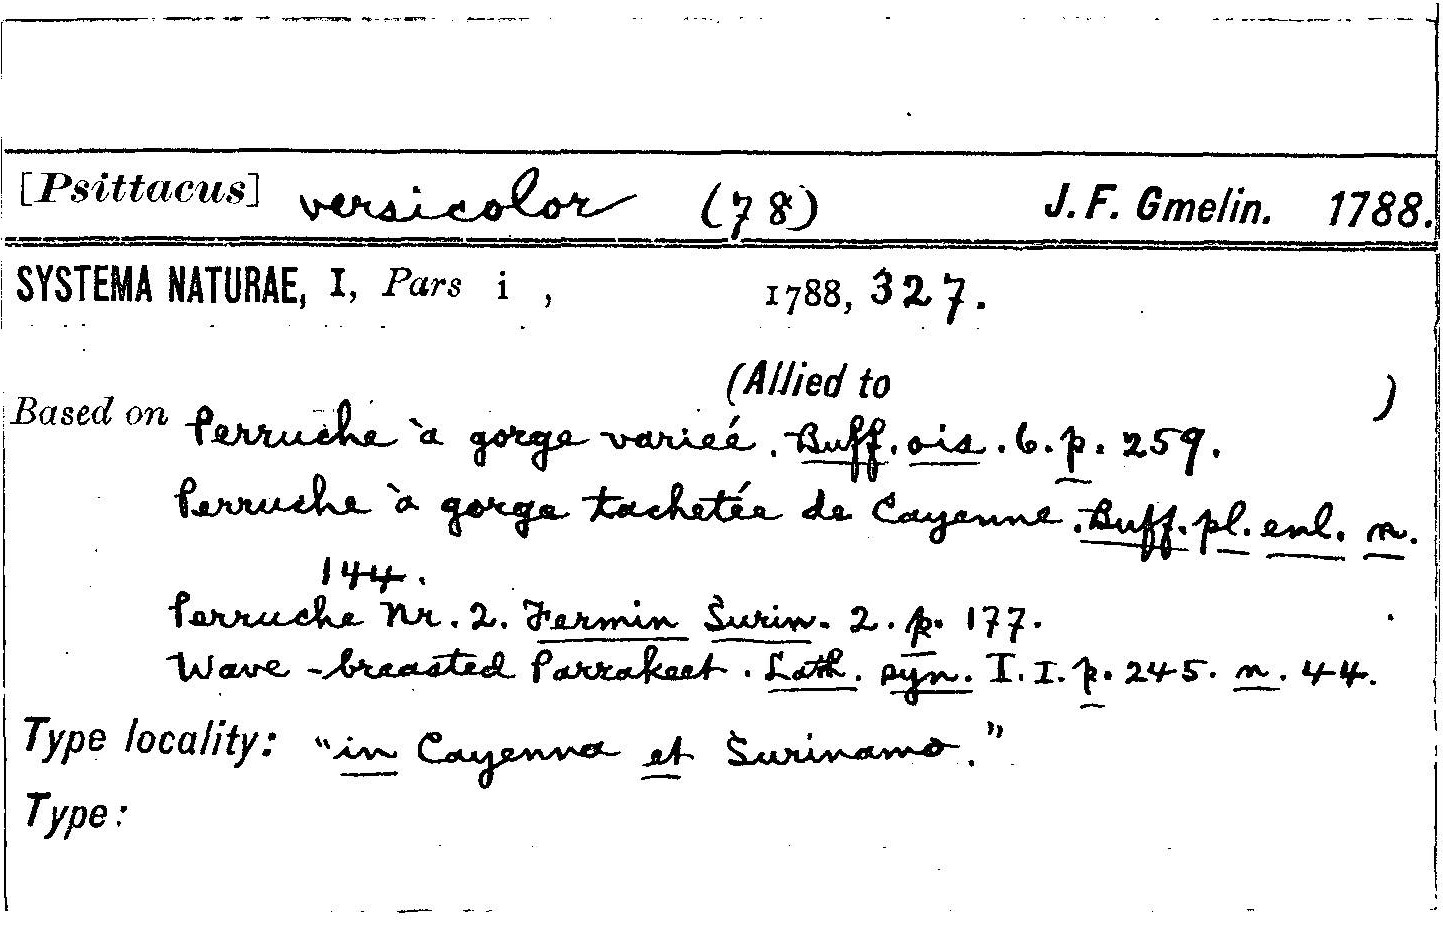 [Psittacus] versicolor (78) J. F. Gmelin. 1788.
SYSTEMA NATURAE, I, Pars i , 1788, 327.
(Allied to )
Based on Perruche à gorge varieé. Buff. ois. 6. p. 259.
Perruche à gorge tachetée de Cayenne. Buff. pl. enl. n.
144.
Perruche Nr. 2. Fermin Surin. 2. p. 177.
Wave-breasted Parrakeet. Lath. syn. I. I. p. 245. n. 44.
Type locality: "in Cayenna et Surinamo."
Type: